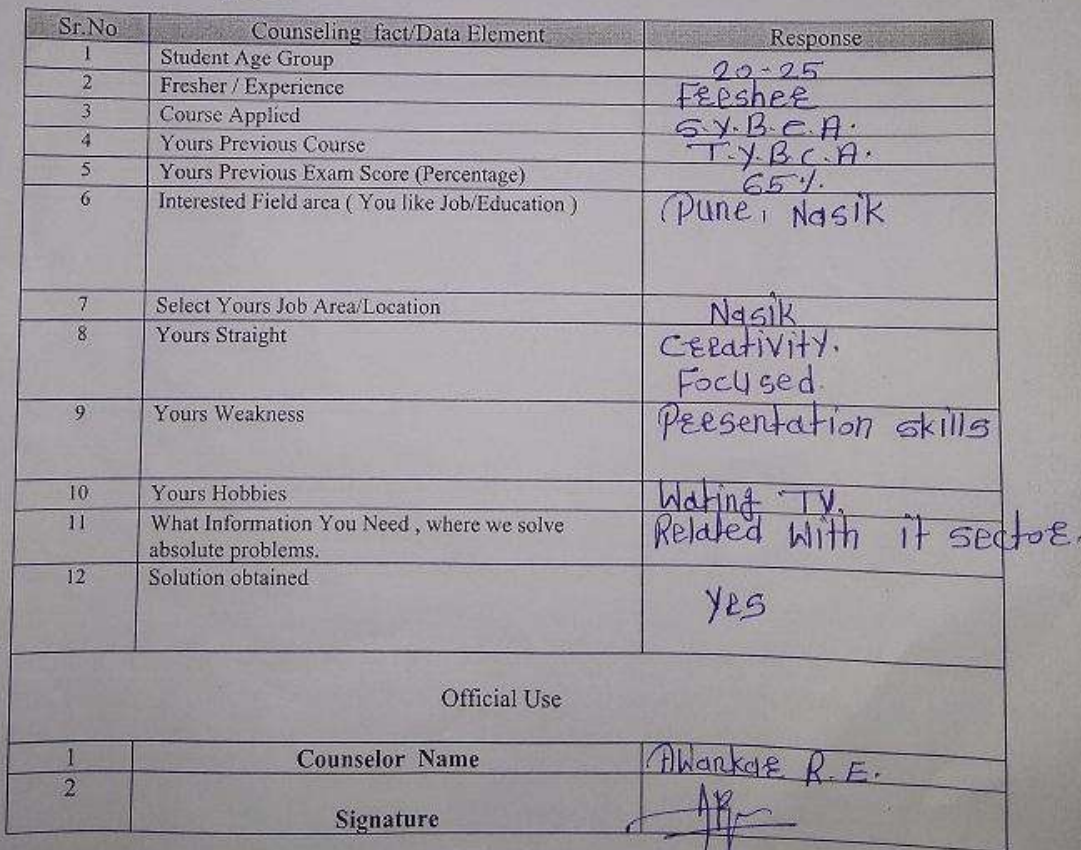 Sr.No Counseling fact/Data Element Response
1 Student Age Group 20-25
2 Fresher / Experience Fresher
3 Course Applied S.Y.B.C.A.
4 Yours Previous Course T.Y.B.C.A.
5 Yours Previous Exam Score (Percentage) 65%.
6 Interested Field area ( You like Job/Education ) Pune, Nasik
7 Select Yours Job Area/Location Nasik
8 Yours Straight Creativity.
Focused.
9 Yours Weakness Presentation skills
10 Yours Hobbies Wating TV.
11 What Information You Need , where we solve Related With it sector.
absolute problems.
12 Solution obtained Yes
Official Use
1 Counselor Name Awankar R.E.
2
Signature